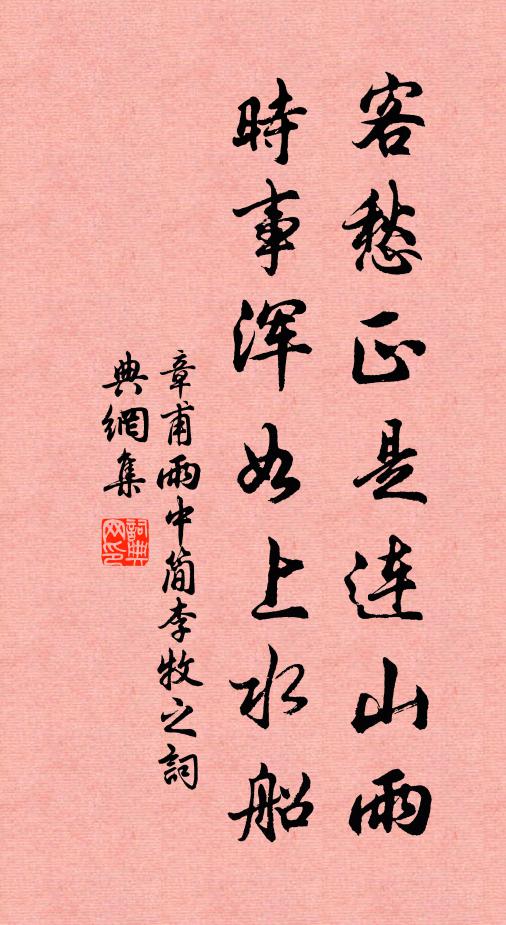 客愁正是连山雨
時事浑如上水船
章甫雨中简李牧之詞
典網集
詞典网印